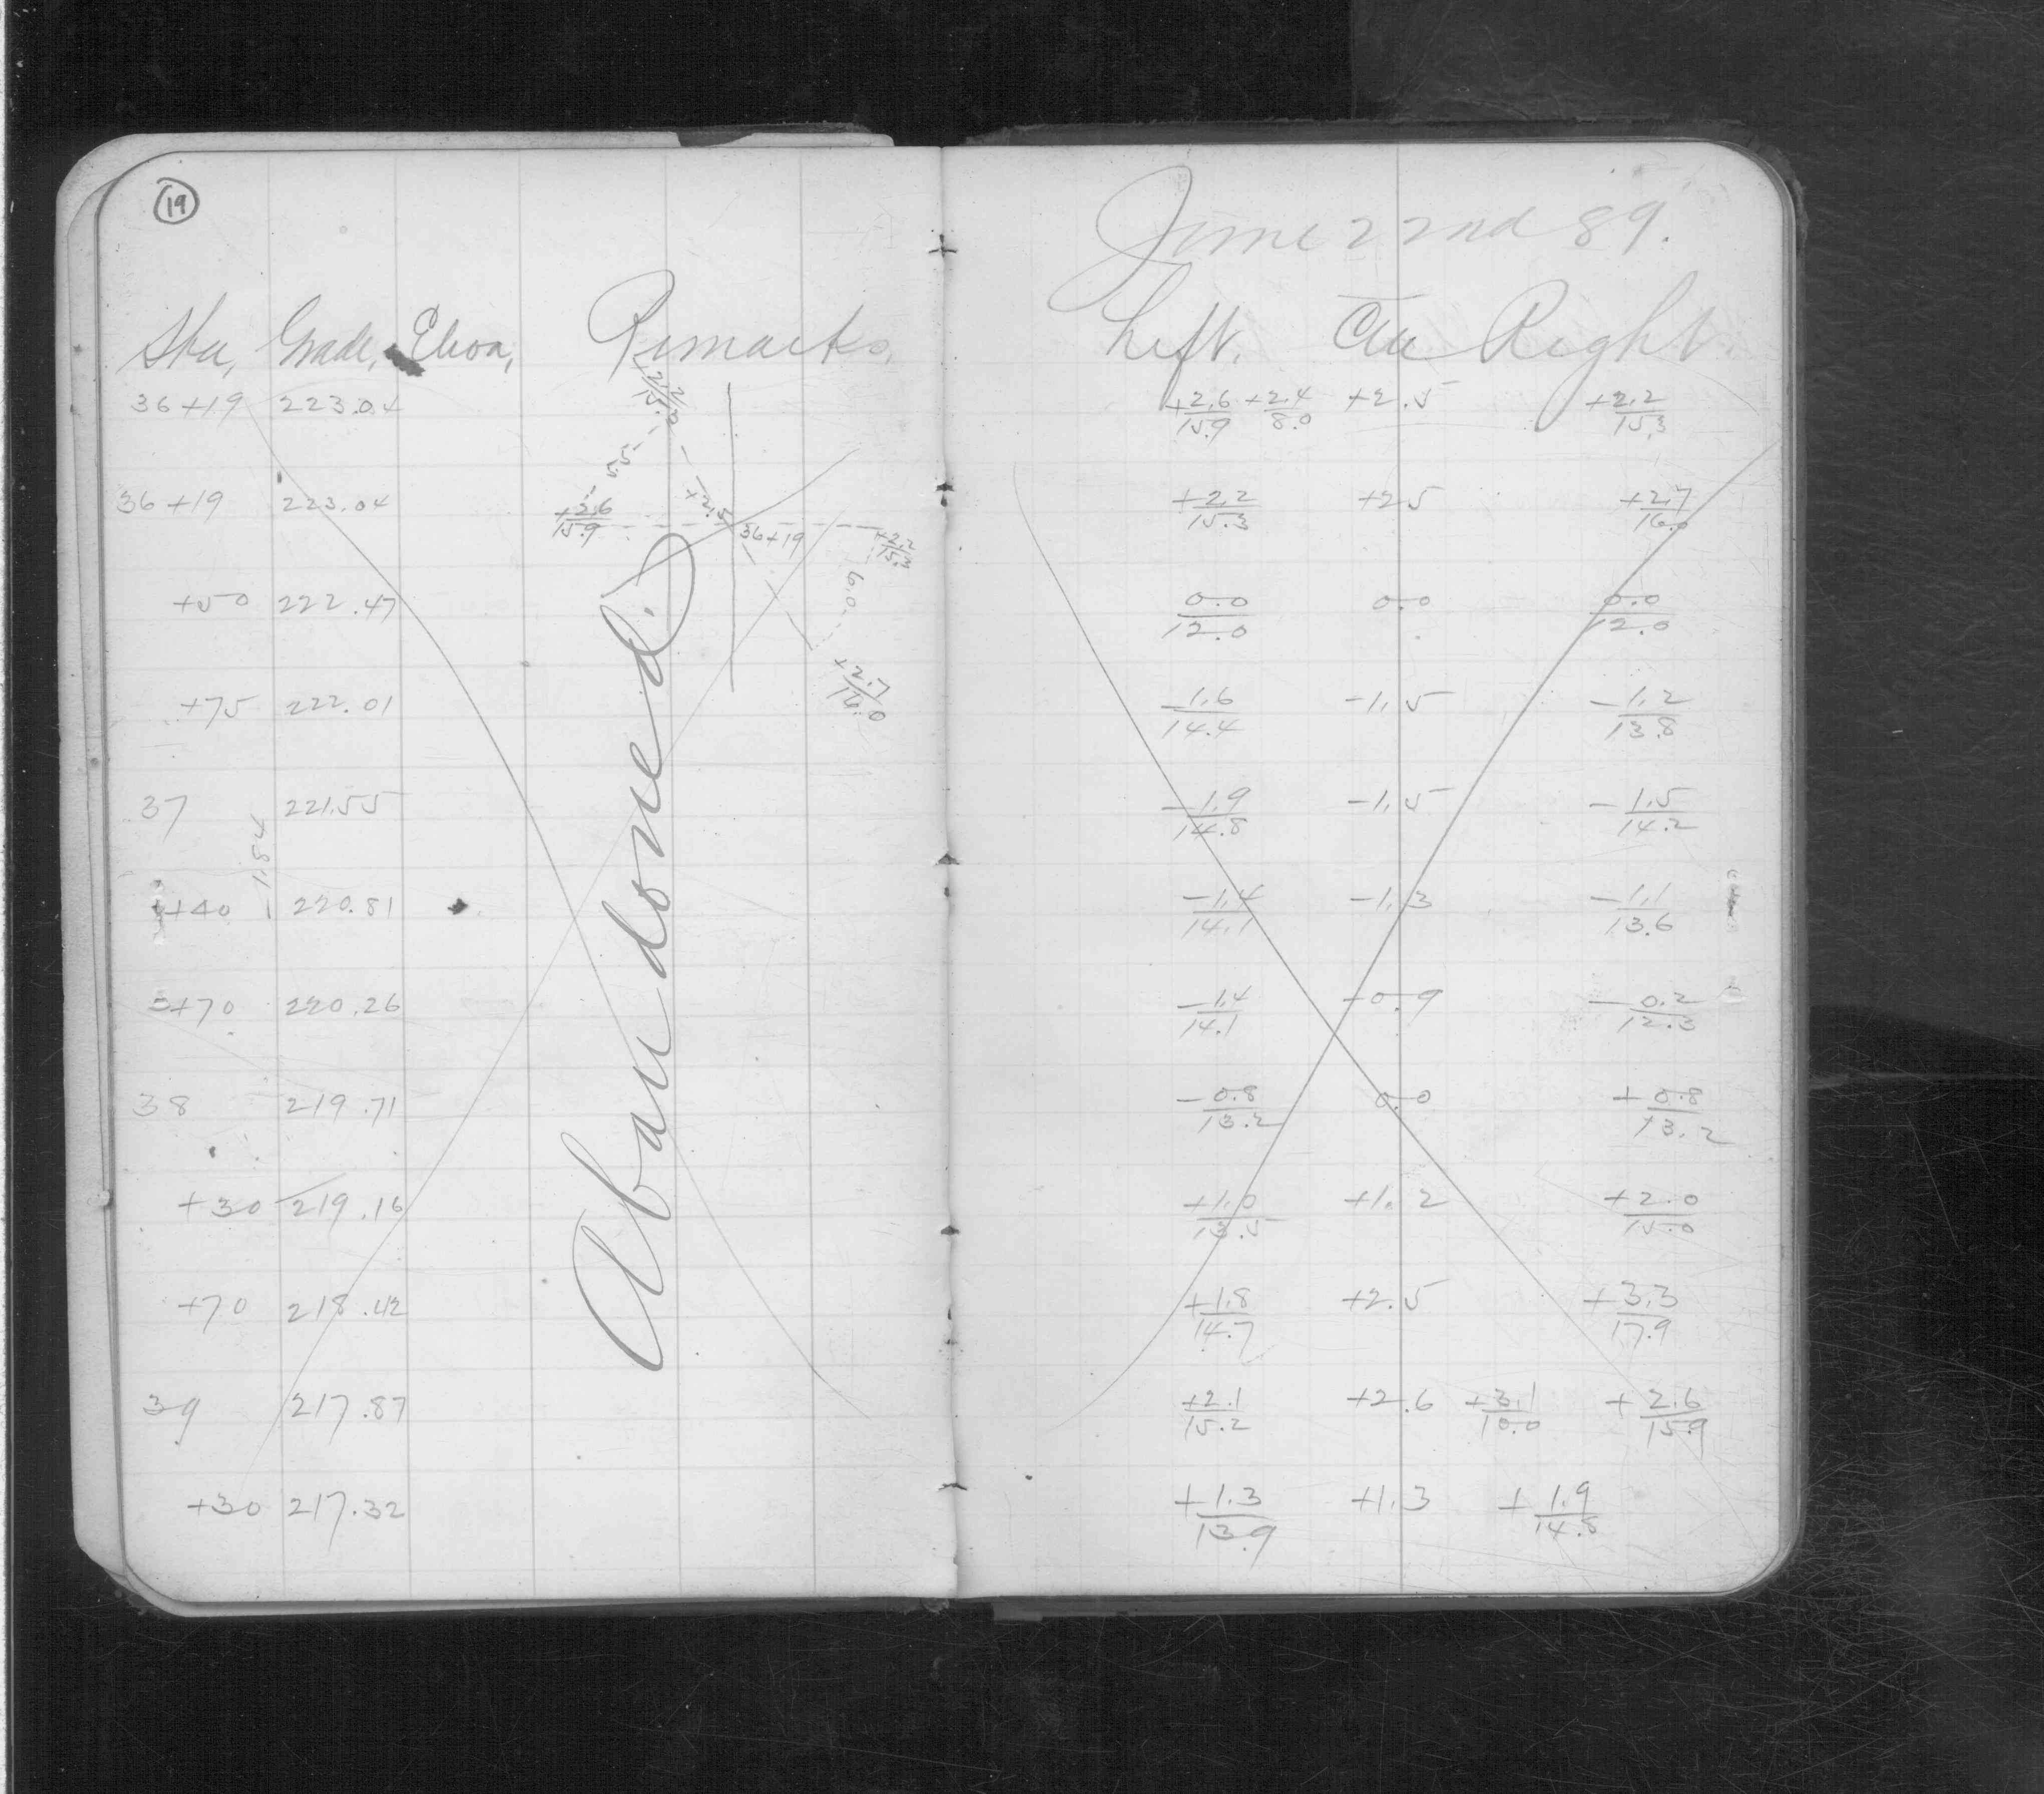 19
June 22nd 89.
Sta, Grade, Elova, Remarks. Left. Cen Right.
36+19 223.04 +2.6/15.9 +2.4/8.0 +2.5 +2.2/15.3
36+19 223.04 +2.2/15.3 +2.5 +2.7/16.0
+50 222.47 0.0/12.0 0.0 0.0/12.0
+75 222.01 -1.6/14.4 -1.5 -1.2/13.8
37 221.55 -1.9/14.8 -1.5 -1.5/14.2
1.84
+40 220.81 -1.4/14.1 -1.3 -1.1/13.6
+70 220.26 -1.4/14.1 -0.9 -0.2/12.3
38 219.71 -0.8/13.2 0.0 +0.8/13.2
+30 219.16 +1.0/13.5 +1.2 +2.0/15.0
+70 218.42 +1.8/14.7 +2.5 +3.3/17.9
39 217.87 +2.1/15.2 +2.6 +3.1/10.0 +2.6/15.9
+30 217.32 +1.3/13.9 +1.3 +1.9/14.8
+2.2/15.3
5.5
+2.6/15.9
+2.5
36+19
+2.2/15.3
6.0
+2.7/16.0
Abandoned.